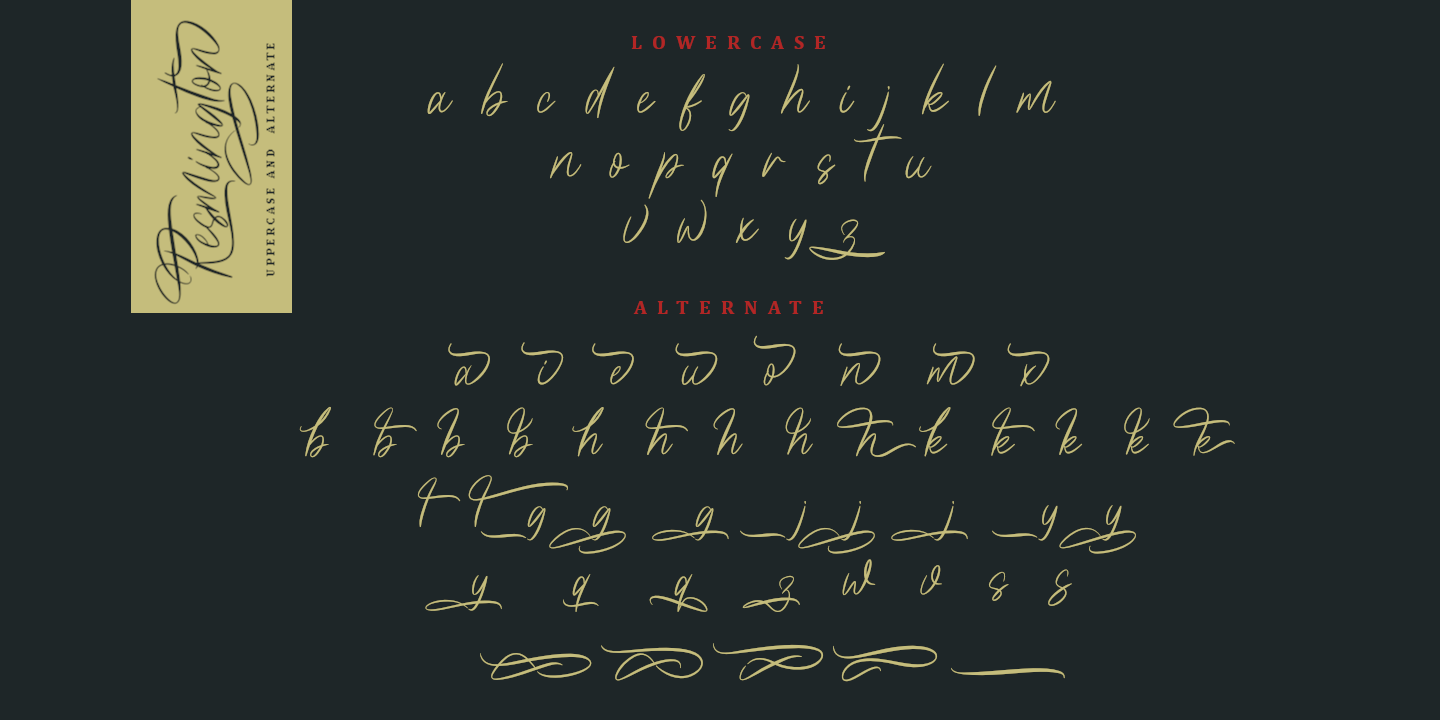 Resmington
UPPERCASE AND ALTERNATE
LOWERCASE
a b c d e f g h i j k l m
n o p q r s t u
v w x y z
ALTERNATE
a i e u o n m x
b b b b h h h h h k k k k k
t t g g g j j j y y
y q q z w v s s